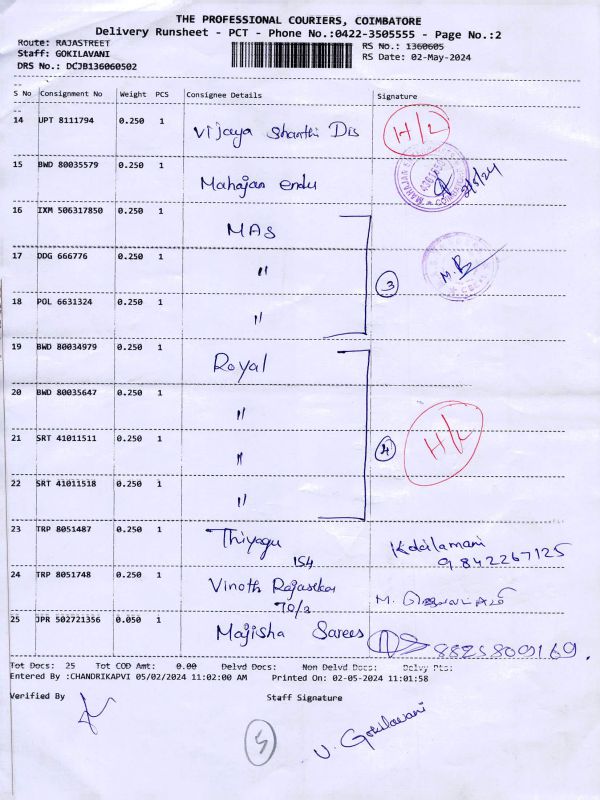 THE PROFESSIONAL COURIERS, COIMBATORE
Delivery Runsheet - PCT - Phone No.:0422-3505555 - Page No.:2
Route: RAJASTREET RS No.: 1360605
Staff: GOKILAVANI RS Date: 02-May-2024
DRS No.: DCJB136060502
S No Consignment No Weight PCS Consignee Details Signature
14 UPT 8111794 0.250 1 Vijaya Shanthi Dis H/L
15 BWD 80035579 0.250 1 Mahajan endu 2/5/24
16 IXM 506317850 0.250 1 MAS
17 DDG 666776 0.250 1 " 3 M.B
18 POL 6631324 0.250 1 "
19 BWD 80034979 0.250 1 Royal
20 BWD 80035647 0.250 1 "
21 SRT 41011511 0.250 1 " 4 H/L
22 SRT 41011518 0.250 1 "
23 TRP 8051487 0.250 1 Thiyagu 154 Kokilamani 9842267125
24 TRP 8051748 0.250 1 Vinoth Rajasekar 70/2 M.
25 JPR 502721356 0.050 1 Majisha Sarees 8825809169.
Tot Docs: 25 Tot COD Amt: 0.00 Delvd Docs: Non Delvd Docs: Delvy Pts:
Entered By :CHANDRIKAPVI 05/02/2024 11:02:00 AM Printed On: 02-05-2024 11:01:58
Verified By Staff Signature
5 V. Gokilavani